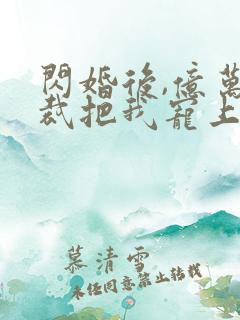 閃婚後,億萬
裁把我寵上
慕清雪
未任同意禁止转载